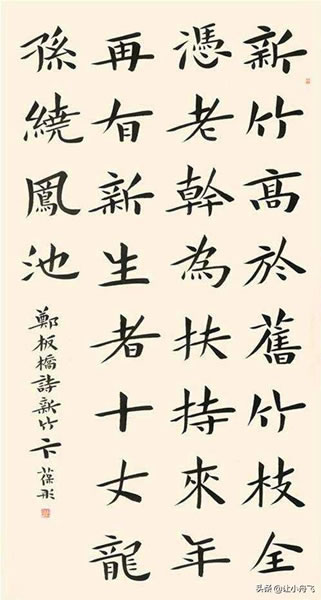 新竹高於舊竹枝全
憑老幹為扶持來年
再有新生者十丈龍
孫繞鳳池
鄭板橋詩新竹 卞葆彤
头条 @让小舟飞